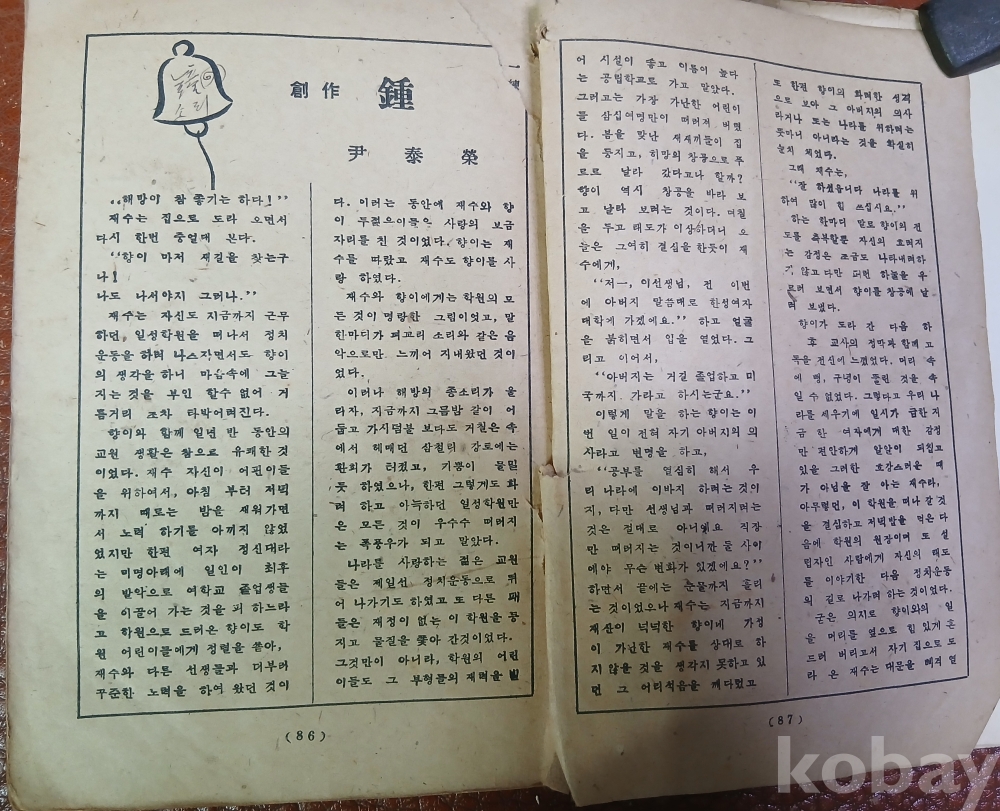 創作 鍾
尹泰榮
“해방이 참 좋기는 하다!”
재수는 집으로 도라 오면서
다시 한번 중얼대 본다.
“향이 마저 새길을 찾는구
나!
나도 나서야지 그러나.”
재수는 자신도 지금까지 근무
하던, 일성학원을 떠나서 정치
운동을 하며 나스자면서도 향이
의 생각을 하니 마음속에 그늘
지는 것을 부인 할수 없어 거
름거리 조차 타박어려진다.
향이와 함께 일년 반 동안의
교원 생활은 참으로 유쾌한 것
이었다. 재수 자신이 어린이들
을 위하여서, 아침 부터 저녁
까지 때로는 밤을 새워가면
서 노력 하기를 아끼지 않었
었지만 한편 여자 정신대라
는 미명아래에 일인이 최후
의 발악으로 여학교 졸업생들
을 이끌어 가는 것을 피 하느라
고 학원으로 드러온 향이도 학
원 어린이들에게 정렬을 쏟아,
재수와 다른 선생들과 더부러
꾸준한 노력을 하여 왔던 것이
다. 이러는 동안에 재수와 향
이 두젊은이들은 사랑의 보금
자리를 친 것이었다. 향이는 재
수를 따랐고 재수도 향이를 사
랑 하였다.
재수와 향이에게는 학원의 모
든 것이 명랑한 그림이엇고, 말
한마디가 꾀꼬리 소리와 같은 음
악으로만 느끼어 지내왔던 것이
었다.
이러나 해방의 종소리가 울
리자, 지금까지 그믐밤 같이 어
둡고 가시덤불 보다도 거칠은 속
에서 헤매던 삼철리 강토에는
환희가 터졌고, 기쁨이 물밀
듯 하였으나, 한편 그렇게도 화
려 하고 아늑하던 일성학원만
은 모든 것이 우수수 떠러지
는 폭풍우가 되고 말았다.
나라를 사랑하는 젊은 교원
들은 제일선 정치운동으로 뛰
어 나가기도 하였고 또 다른 패
들은 재정이 없는 이 학원을 등
지고 물질을 쫓아 간것이었다.
그것만이 아니라, 학원의 어린
이들도 그 부형들의 재력을 빌
(86)
어 시설이 좋고 이름이 높다
는 공립학교로 가고 말았다.
그러고는 가장 가난한 어린이
들 삼십여명만이 떠러져 버렸
다. 봄을 맞난 새새끼들이 집
을 등지고, 히망의 창공으로 푸
르르 날라 갔다고나 할까?
향이 역시 창공을 바라 보
고 날라 보려는 것이다. 며칠
을 두고 태도가 이상하더니 오
늘은 그여히 결심을 한듯이 재
수에게,
“저一, 이선생님, 전 이번
에 아버지 말씀대로 한성여자
대학에 가겠에요.” 하고 얼굴
을 붉히면서 입을 열었다. 그
리고 이어서,
“아버지는 거길 졸업하고 미
국까지 가라고 하시는군요.”
이렇게 말을 하는 향이는 이
번 일이 전혀 자기 아버지의 의
사라고 변명을 하고,
“공부를 열심히 해서 우
리 나라에 이바지 하려는 것이
지, 다만 선생님과 떠러지려는
것은 절대로 아니에요 직장
만 떠러지는 것이니깐 둘 사이
에야 무슨 변화가 있겠에요?”
하면서 끝에는 눈물까지 흘리
는 것이었으나 재수는 지금까지
재산이 넉넉한 향이네 가정
이 가난한 재수를 상대로 하
지 않을 것을 생각지 못하고 있
던 그 어리석음을 깨다렀고
또 한편 향이의 화려한 성격
으로 보아 그 아버지의 의사
라거나 또는 나라를 위하려는
뜻마니 아니라는 것을 확실히
눈치 채었다.
그래 재수는,
“잘 하셨읍니다 나라를 위
하여 많이 힘 쓰십시요.”
하는 한마디 말로 향이의 전
도를 축복할뿐 자신의 흐려지
는 감정은 조금도 나타내려하
지 않고 다만 퍼런 하늘을 우
르러 보면서 향이를 창공에 날
려 보냈다.
향이가 도라 간 다음 하
후 교사의 정막과 함께 고
독을 전신에 느꼈었다. 머리 속
에 뗑, 구녕이 뚤린 것을 속
일 수 없었다. 그렇다고 우리 나
라를 세우기에 일시가 급한 지
금 한 여자에게 대한 감정
만 편안하게 알알이 되칩고
있을 그러한 호강스러운 때
가 아님을 잘 아는 재수라,
아무렇던, 이 학원을 떠나 갈 것
을 결심하고 저녁밥을 먹은 다
음에 학원의 원장이며 또 설
립자인 사람에게 자신의 태도
를 이야기한 다음 정치운동
의 길로 나가려 하는 것이었다.
굳은 의지로 향이와의 일
을 머리를 옆으로 힘 있게 흔
드러 버리고서 자기 집으로 도
라 온 재수는 대문을 삐걱 열
(87)
kobay